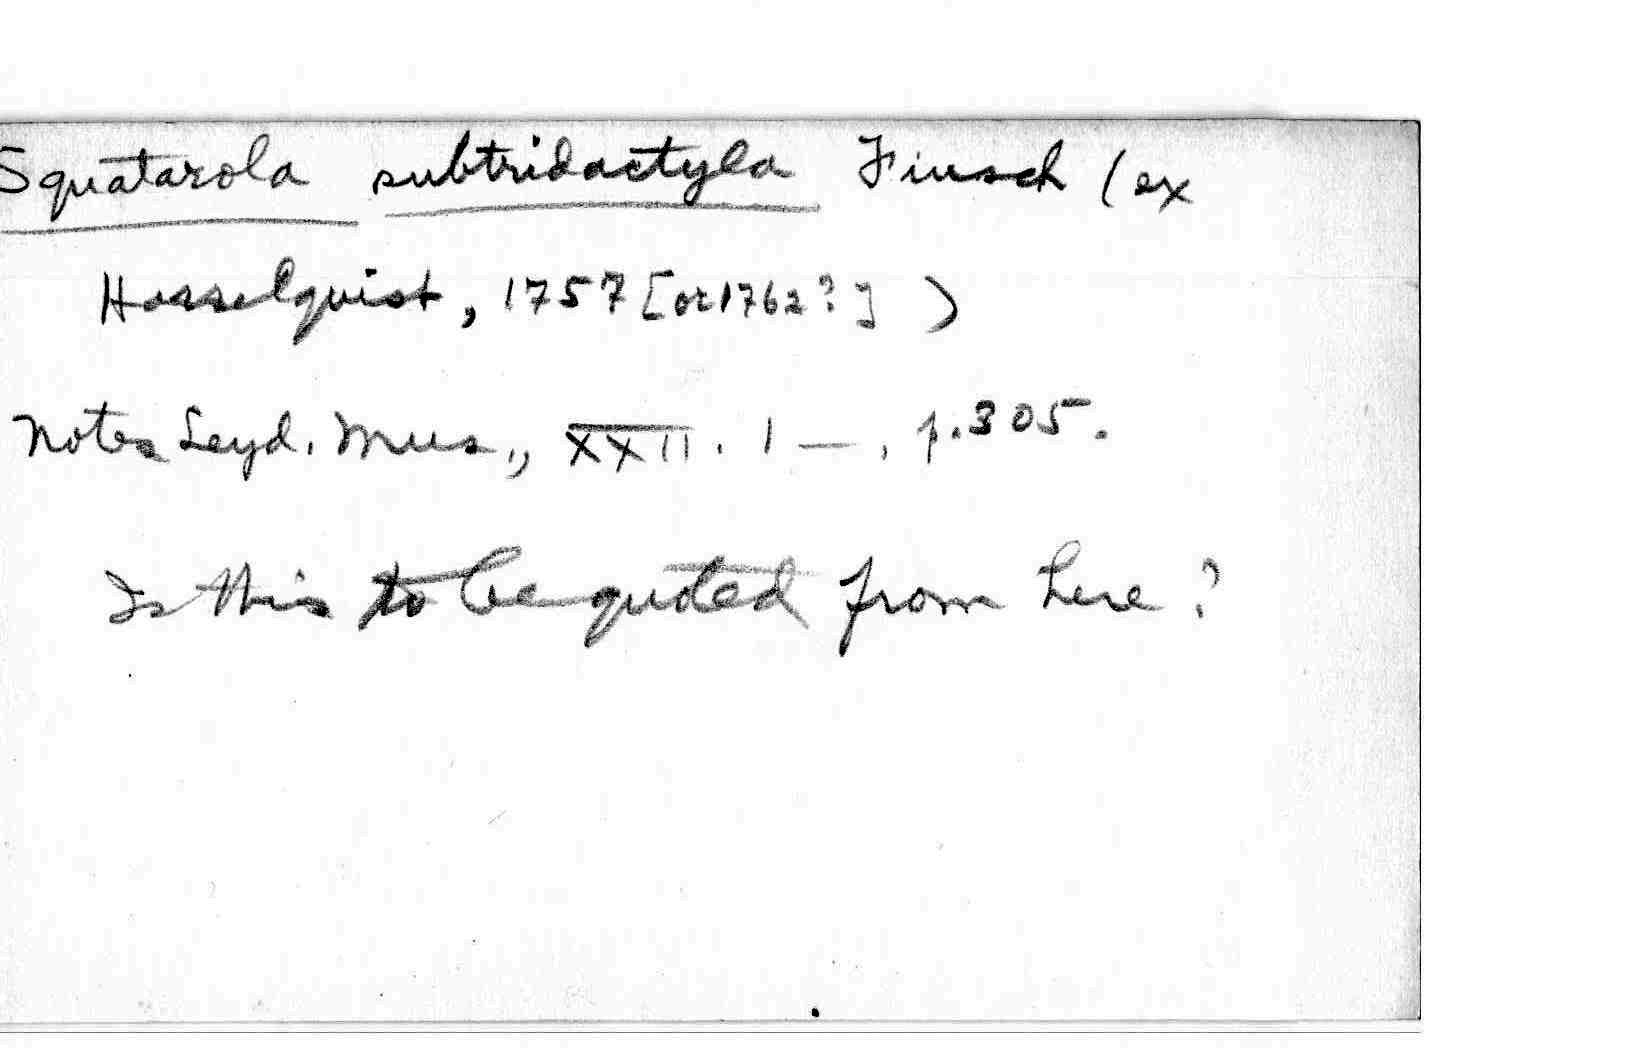 Squatarola subtridactyla Finsch (ex
Hasselquist, 1757 [or 1762?])
Notes Leyd. Mus., XXII. 1 — , p. 305.
Is this to be quoted from here?